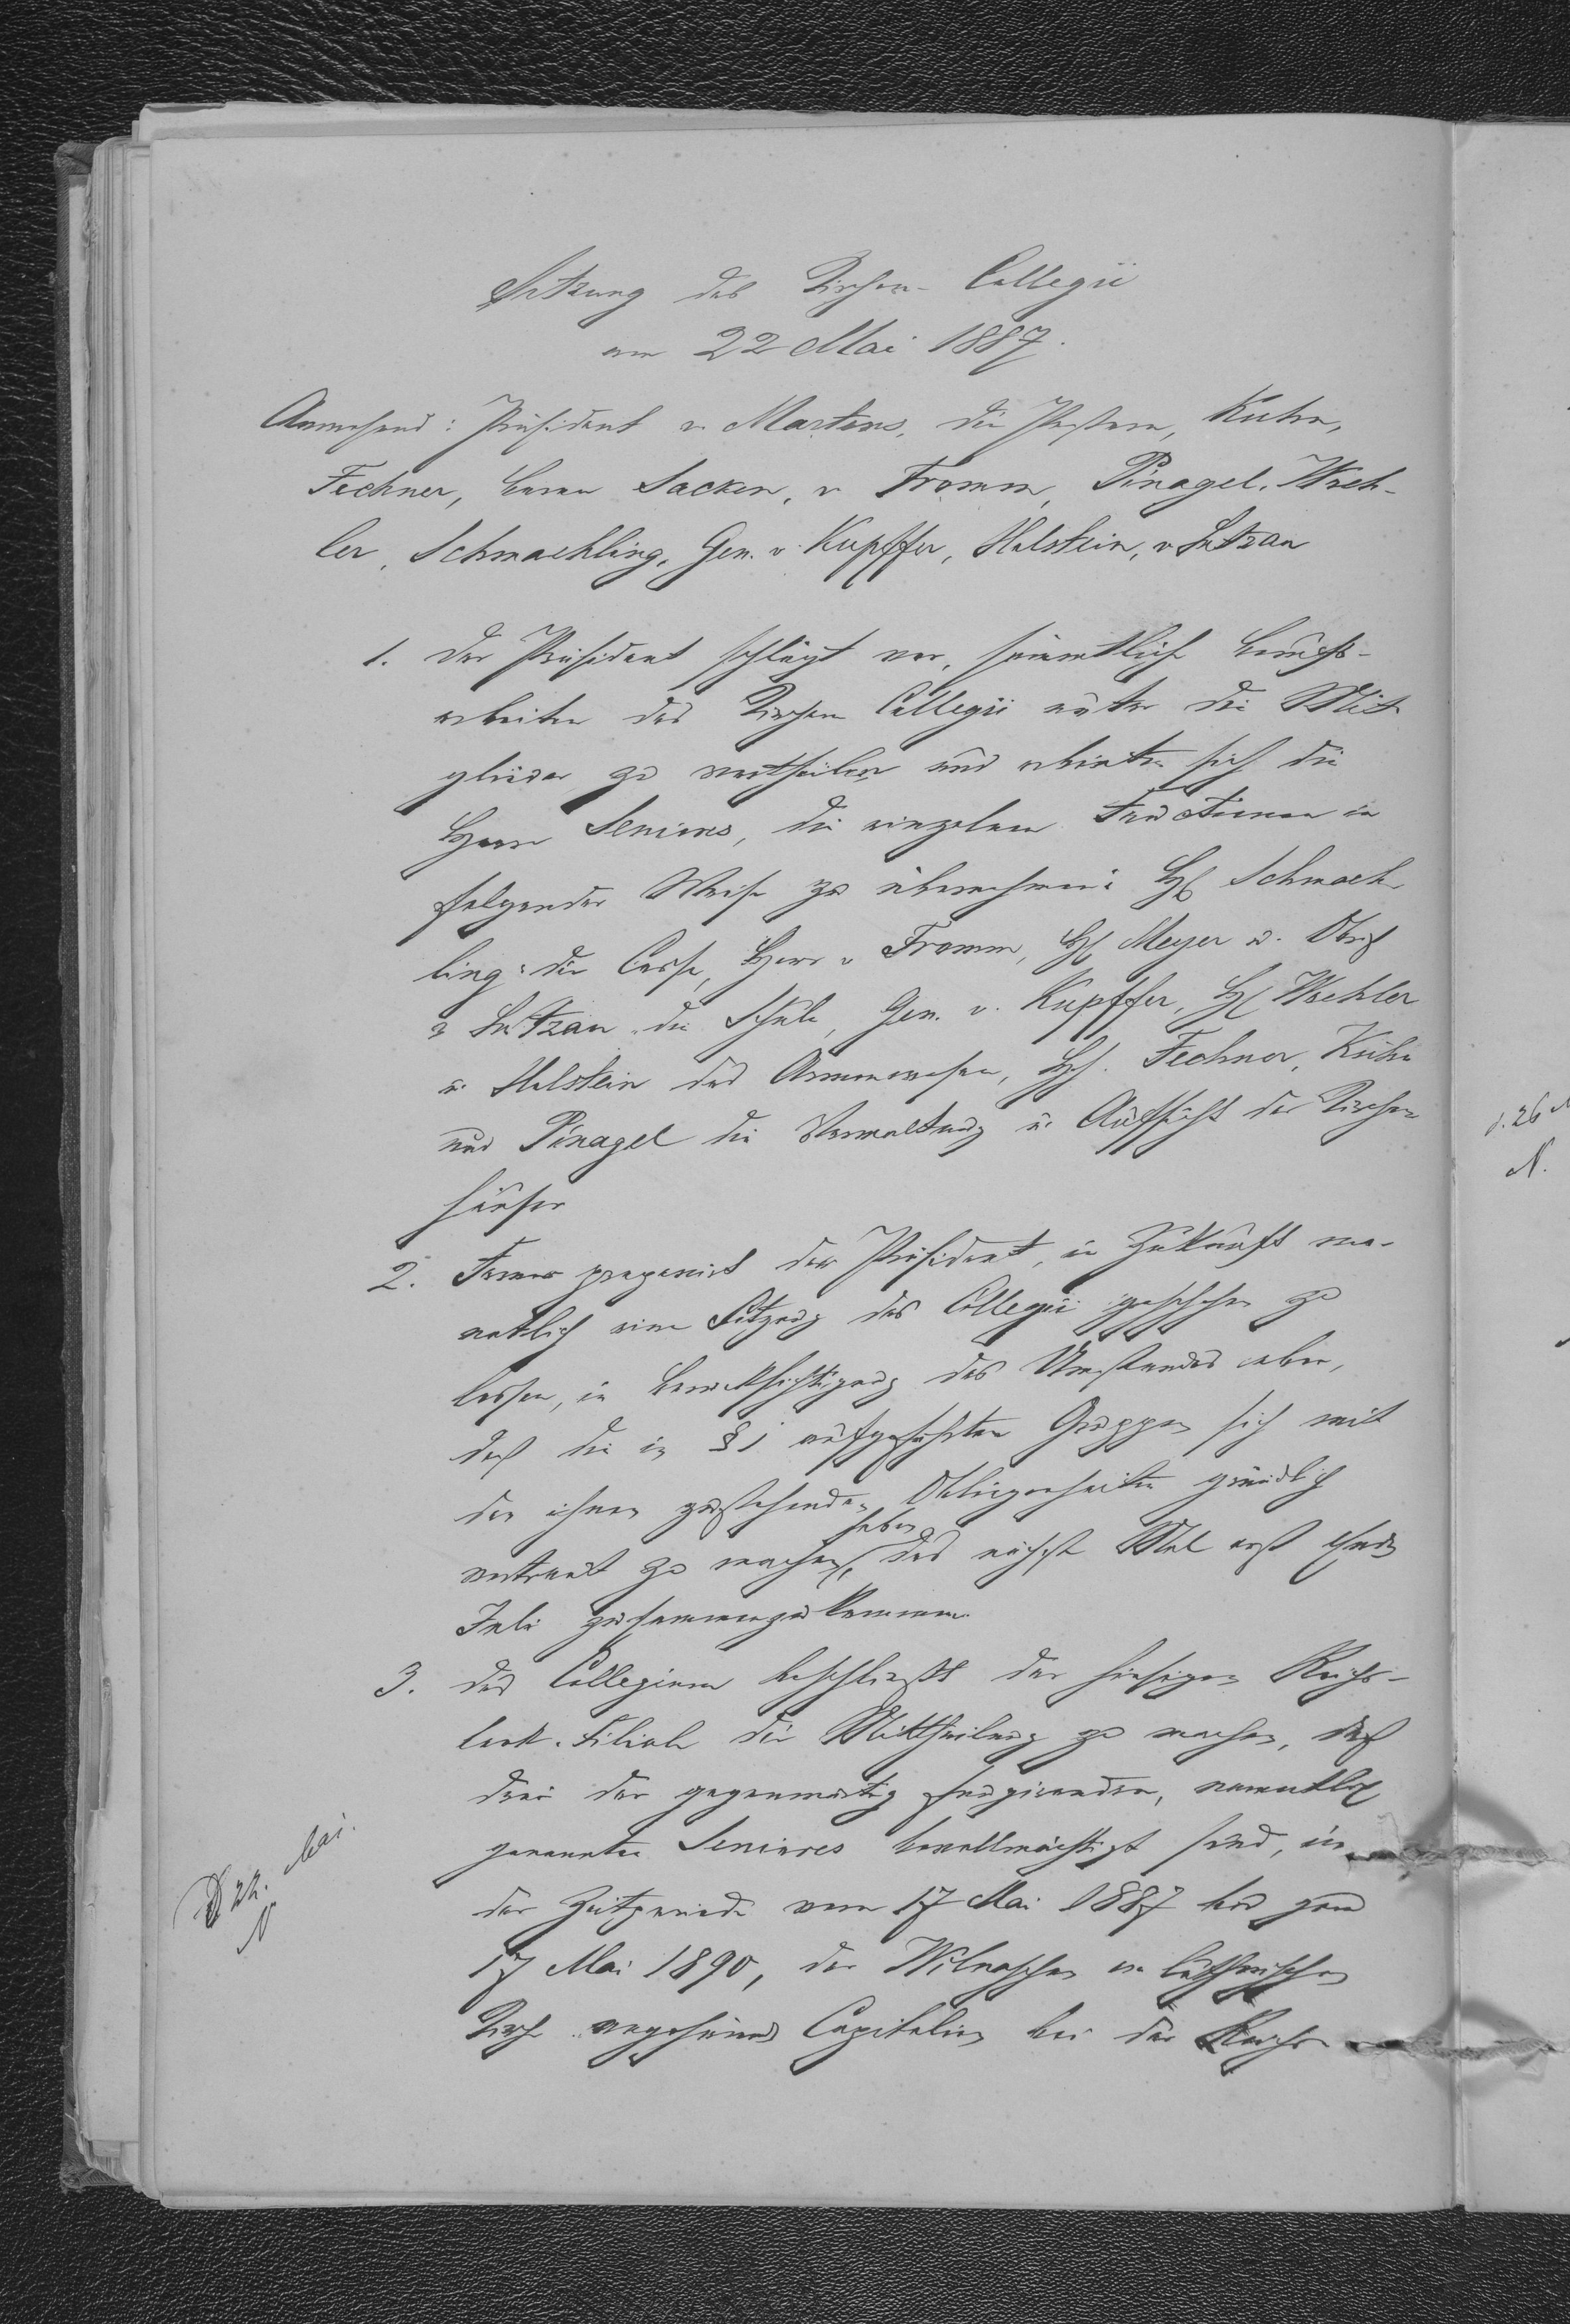 Sitzung des Kirchen-Collegii
am 22 Mai 1887.
Anwesend: Präsident v. Martens, die Pastore, Kuhn,
Fechner, Baron Sacken, v Fromm, Pinagel, Woeh-
ler, Schmaehling, Gen. v. Kupffer, Holstein, v Lutzau
1. Der Präsident schlägt vor, sämmtliche Berufs-
arbeiten des Kirchen Collegii unter die Mit-
glieder zu vertheilen und erbieten sich die
Herrn Seniores, die einzelnen Functionen in
folgender Weise zu übernehmen: H. Schmaeh-
ling: die Casse, Herr v Fromm, H. Meyer u. Obrist
v Lutzau die Schule, Gen. v. Kupffer, H. Woehler
u. Holstein das Armenwesen, HH. Fechner, Kuhn
und Pinagel die Verwaltung u. Aufsicht der Kirchen
häuser
2. Ferner proponirt der Präsident, in Zukunft mo-
natlich eine Sitzung des Collegii geschehen zu
lassen, in Berücksichtigung des Umstandes aber,
daß die in § 1 aufgeführten Gruppen sich mit
den ihnen zustehenden Obliegenheiten gründlich
haben
vertraut zu machen, das nächste Mal erst Ende
Juli zusammenzukommen.
3. Das Collegium beschließt der hiesigen Reichs-
bank-Filiale die Mittheilung zu machen, daß
drei der gegenwärtig fungirenden, namentlich
genannten Seniores bevollmächtigt sind, in
der Zeitperiode vom 17 Mai 1887 bis zum
17 Mai 1890, der Wilnaschen ev. lutherischen
Kirche angehörend Capitalien bei der Reichs-
D 22. Mai.
N
d. 26
N.